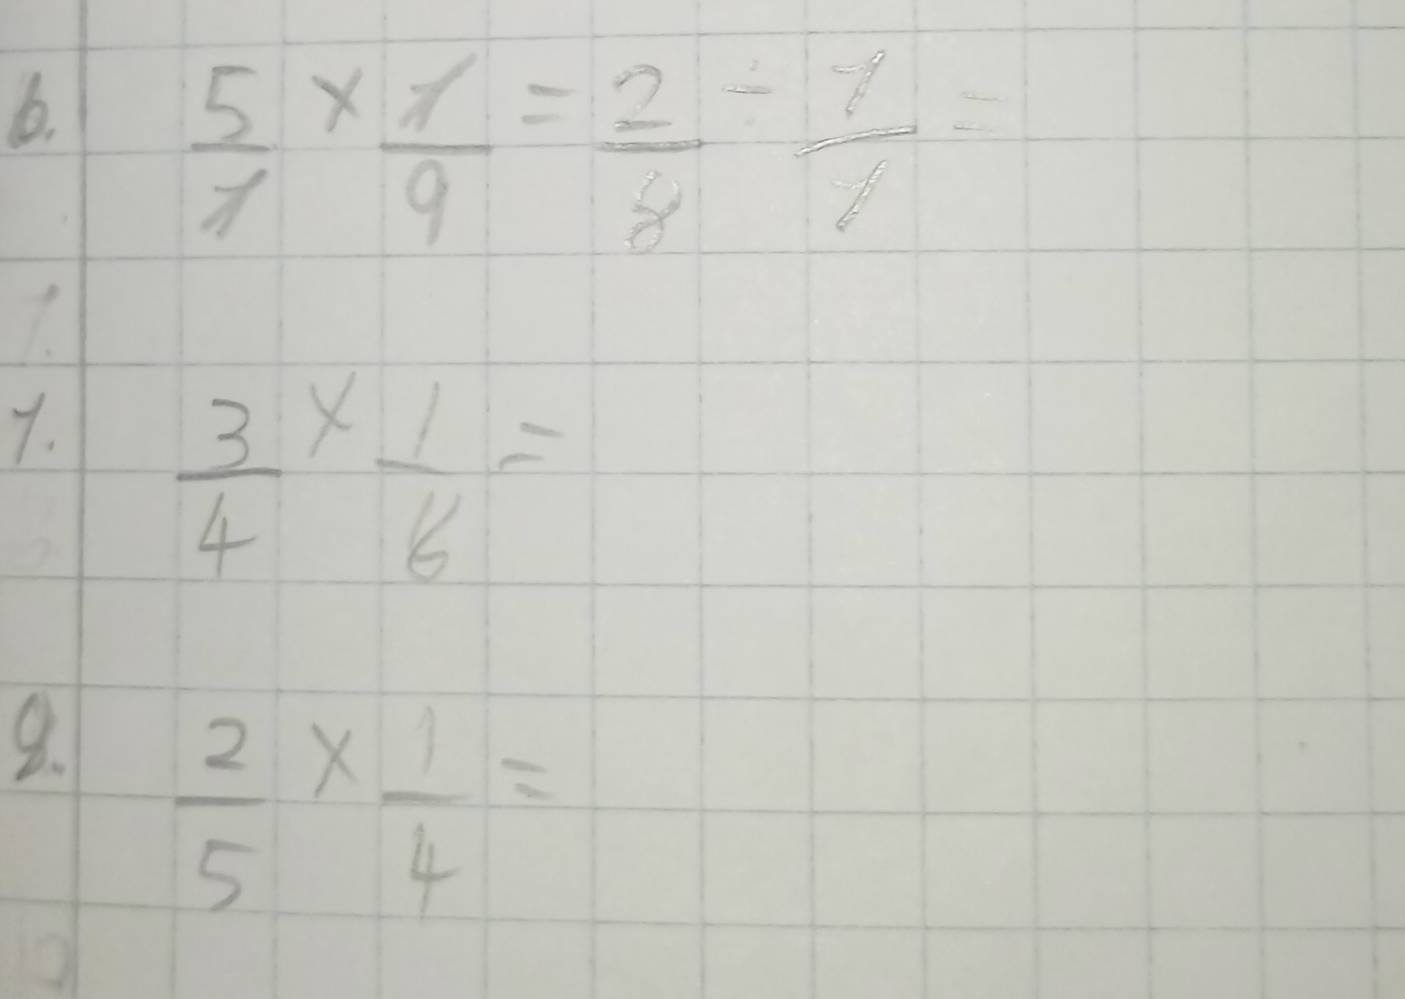 6. 5/1 × 1/9 = 2/8 ÷ 1/1 =
7.
7. 3/4 × 1/6 =
8. 2/5 × 1/4 =